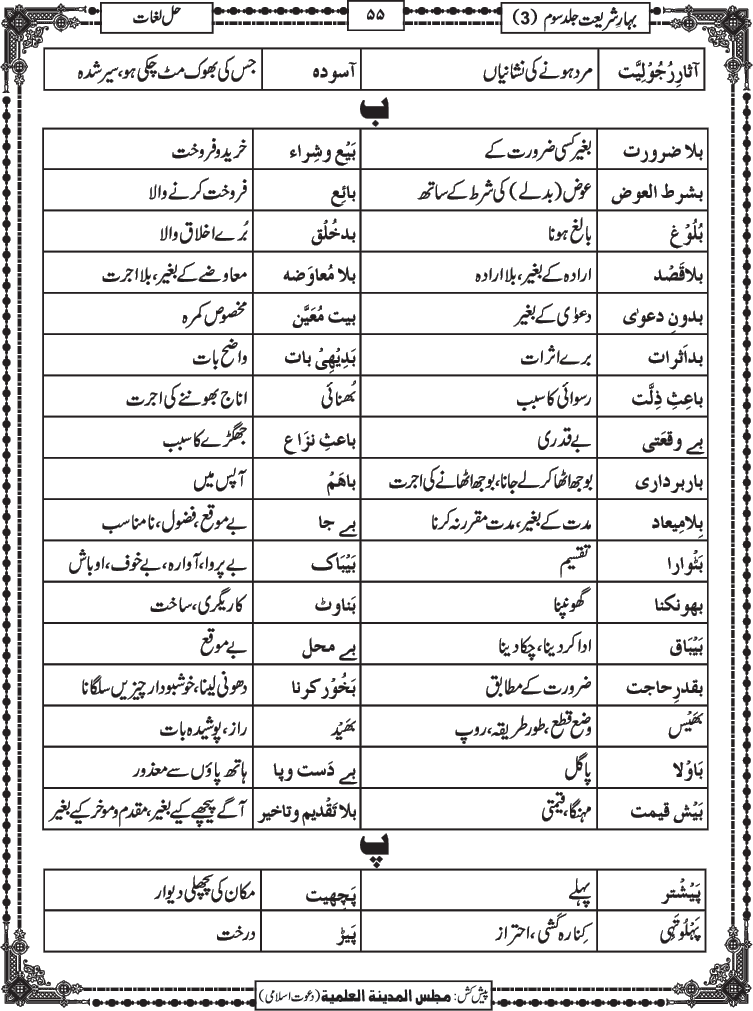 بہارِ شریعت جلد سوم (3) ۵۵ حل لغات
آثارِ رُجُوْلِیَّت مرد ہونے کی نشانیاں آسودہ جس کی بھوک مٹ چکی ہو، سیر شدہ
ب
بلا ضرورت بغیر کسی ضرورت کے بَیْع وشِراء خرید و فروخت
بشرط العوض عوض (بدلے) کی شرط کے ساتھ بائِع فروخت کرنے والا
بُلُوْغ بالغ ہونا بدخُلُق بُرے اخلاق والا
بلاقَصْد ارادہ کے بغیر، بلا ارادہ بلا مُعاوَضہ معاوضے کے بغیر، بلا اجرت
بدونِ دعوٰی دعوٰی کے بغیر بیت مُعَیَّن مخصوص کمرہ
بداَثرات برے اثرات بَدِیْھِیْ بات واضح بات
باعِثِ ذِلَّت رسوائی کا سبب بُھنائی اناج بھوننے کی اجرت
بے وقعَتی بے قدری باعثِ نزَاع جھگڑے کا سبب
باربرداری بوجھ اٹھا کر لے جانا، بوجھ اٹھانے کی اجرت باھَمْ آپس میں
بِلامِیعاد مدت کے بغیر، مدت مقرر نہ کرنا بے جا بے موقع، فضول، نامناسب
بَٹْوارا تقسیم بَیْبَاک بے پروا، آوارہ، بے خوف، اوباش
بھونکنا گھونپنا بَناوٹ کاریگری، ساخت
بَیْبَاق ادا کردینا، چکا دینا بے محل بے موقع
بقدرِ حاجت ضرورت کے مطابق بَخُوْر کرنا دھونی لینا، خوشبودار چیزیں سلگانا
بھَیْس وضع قطع، طور طریقہ، روپ بھَیْد راز، پوشیدہ بات
بَاوْلا پاگل بے دَست وپا ہاتھ پاؤں سے معذور
بَیْش قیمت مہنگا، قیمتی بلا تَقْدِیم وتاخیر آگے پیچھے کیے بغیر، مقدم و موخر کیے بغیر
پ
پَیْشْتر پہلے پَچِھیت مکان کی پچھلی دیوار
پَہْلُوتَہِی کِنارہ کَشی، احتراز پَیڑ درخت
پیش کش: مجلس المدینۃ العلمیۃ (دعوتِ اسلامی)